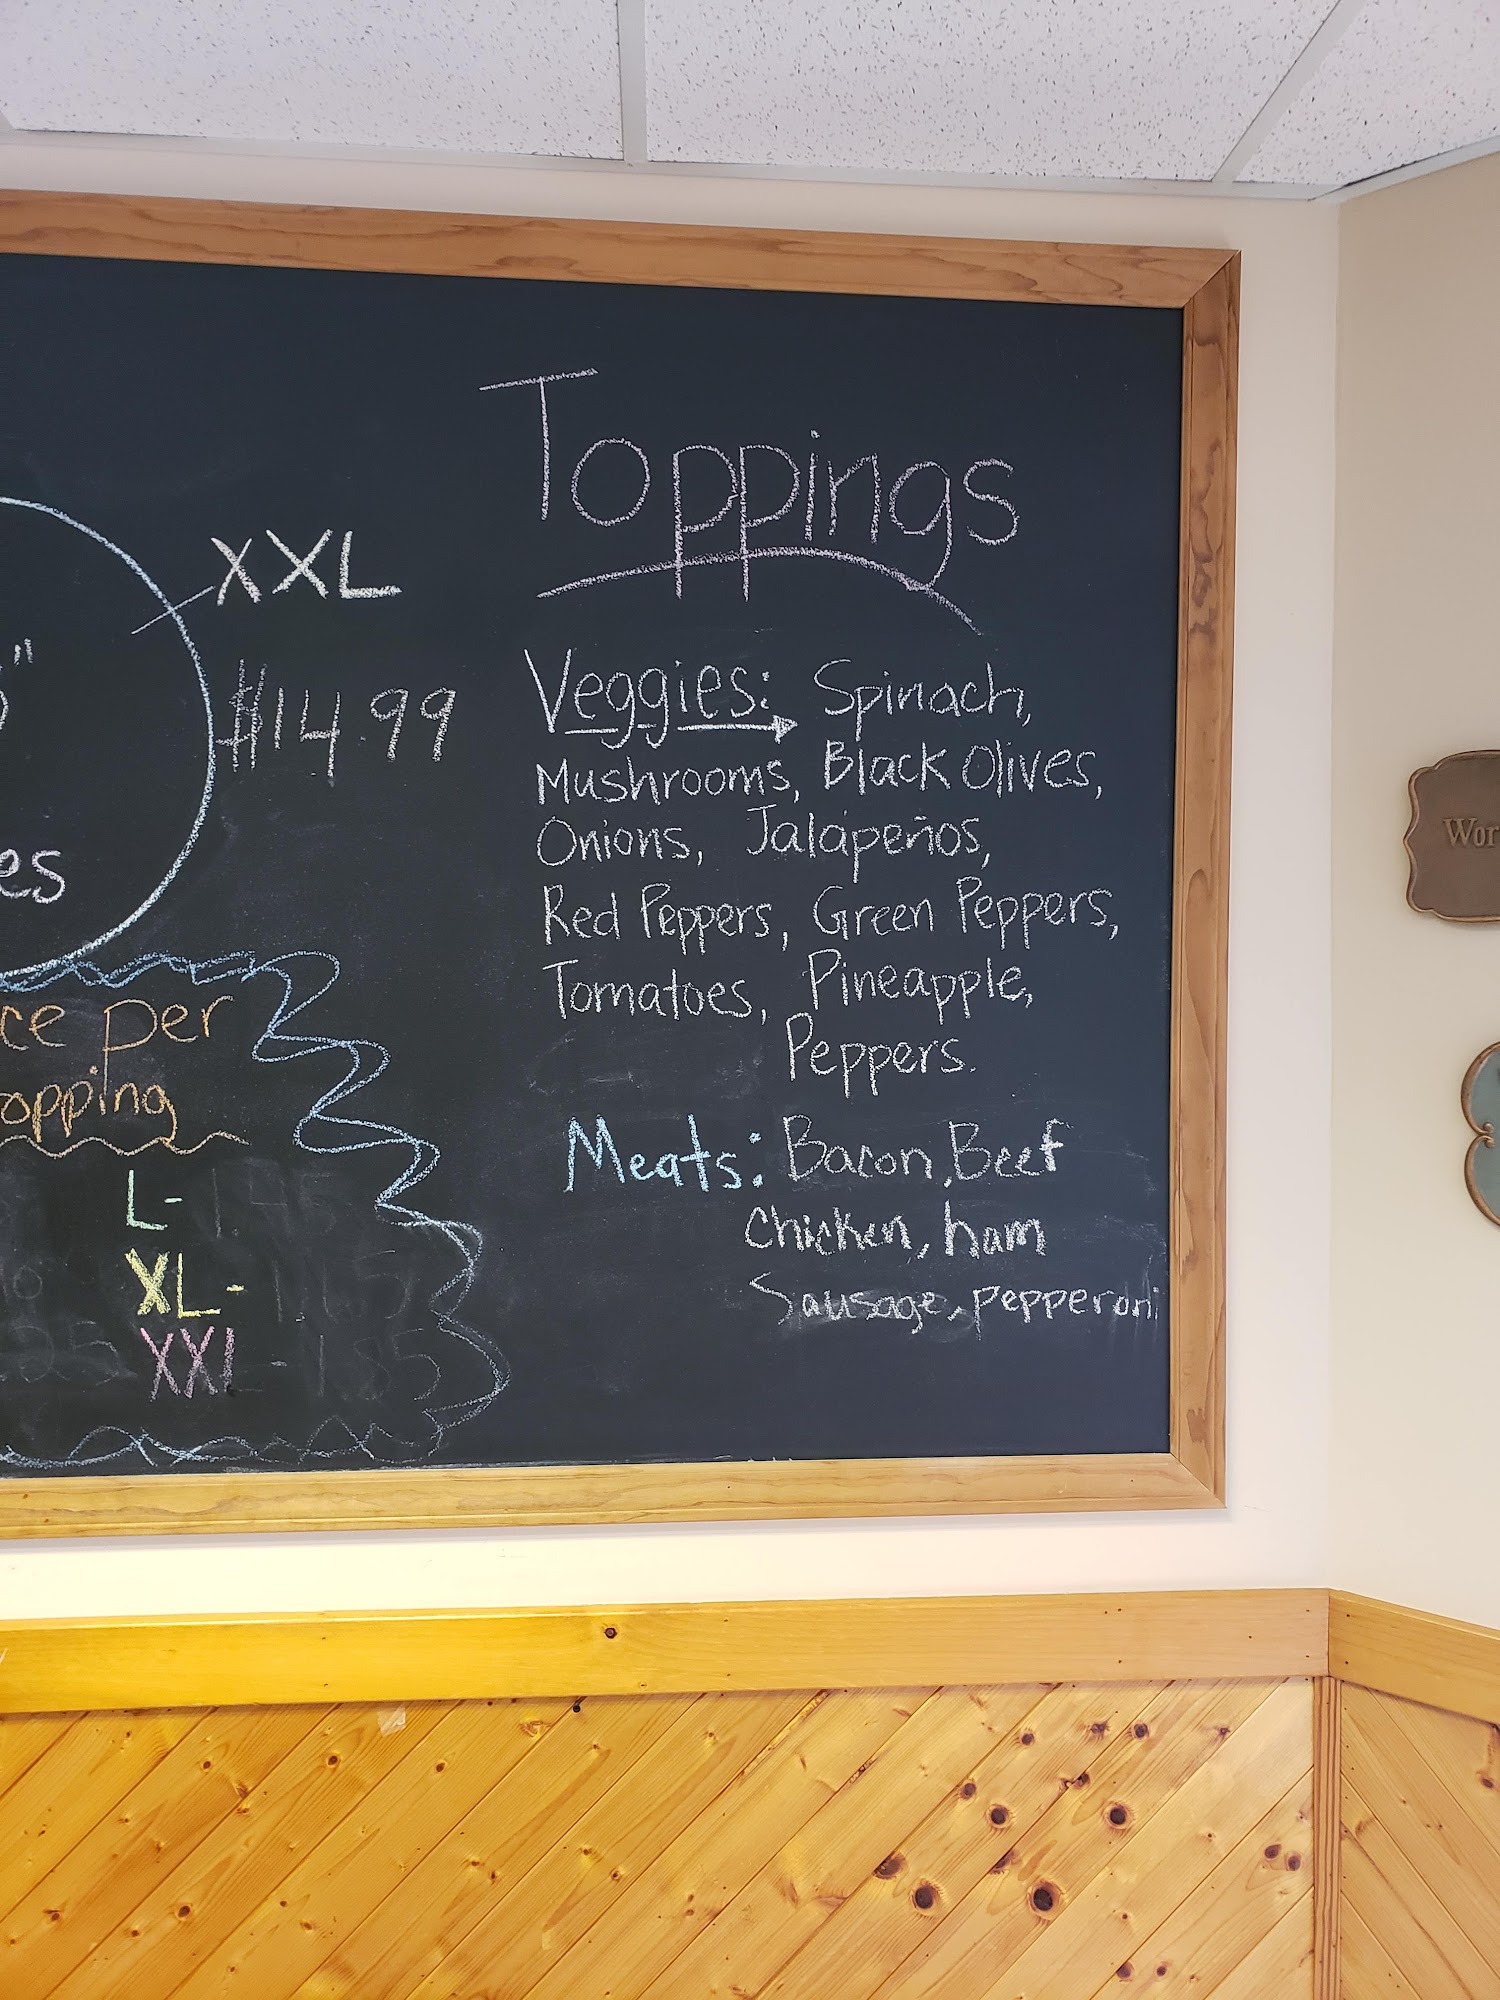 Toppings
XXL
$14.99
Veggies: Spinach,
Mushrooms, Black Olives,
Onions, Jalapeños,
Red Peppers, Green Peppers,
Tomatoes, Pineapple,
Peppers.
Meats: Bacon, Beef
Chicken, ham
Sausage, pepperoni
per
L-
XL-
XXL